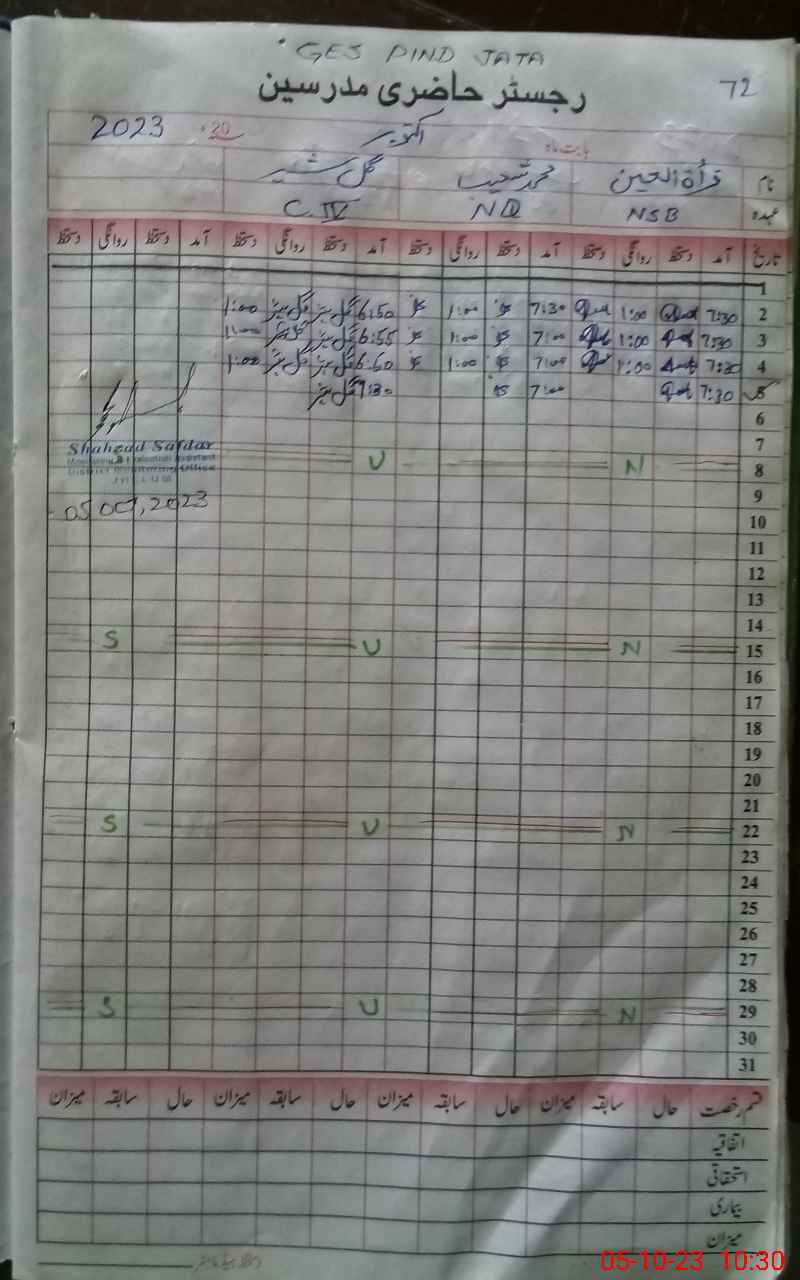 GES PIND JATA
72
رجسٹر حاضری مدرسین
بابت ماہ اکتوبر 20 2023
نام قرأۃ العین محمد شعیب گل شیر
عہدہ NSB NQ C.IV
تاریخ آمد دستخط روانگی دستخط آمد دستخط روانگی دستخط آمد دستخط روانگی دستخط آمد دستخط روانگی دستخط
1
2 7:30 1:00 7:30 1:00 6:50 1:00
3 7:30 1:00 7:00 1:00 6:55 1:00
4 7:30 1:00 7:00 1:00 6:50 1:00
5 7:30 7:00 7:30
6
7
Shahzad Safdar
Monitoring & Evaluation Assistant
District Monitoring Office
8 N U
9
05 OCT, 2023
10
11
12
13
14
15 N U S
16
17
18
19
20
21
22 N U S
23
24
25
26
27
28
29 N U S
30
31
قسم رخصت حال سابقہ میزان حال سابقہ میزان حال سابقہ میزان حال سابقہ میزان
اتفاقیہ
استحقاقی
بیماری
میزان
05-10-23 10:30